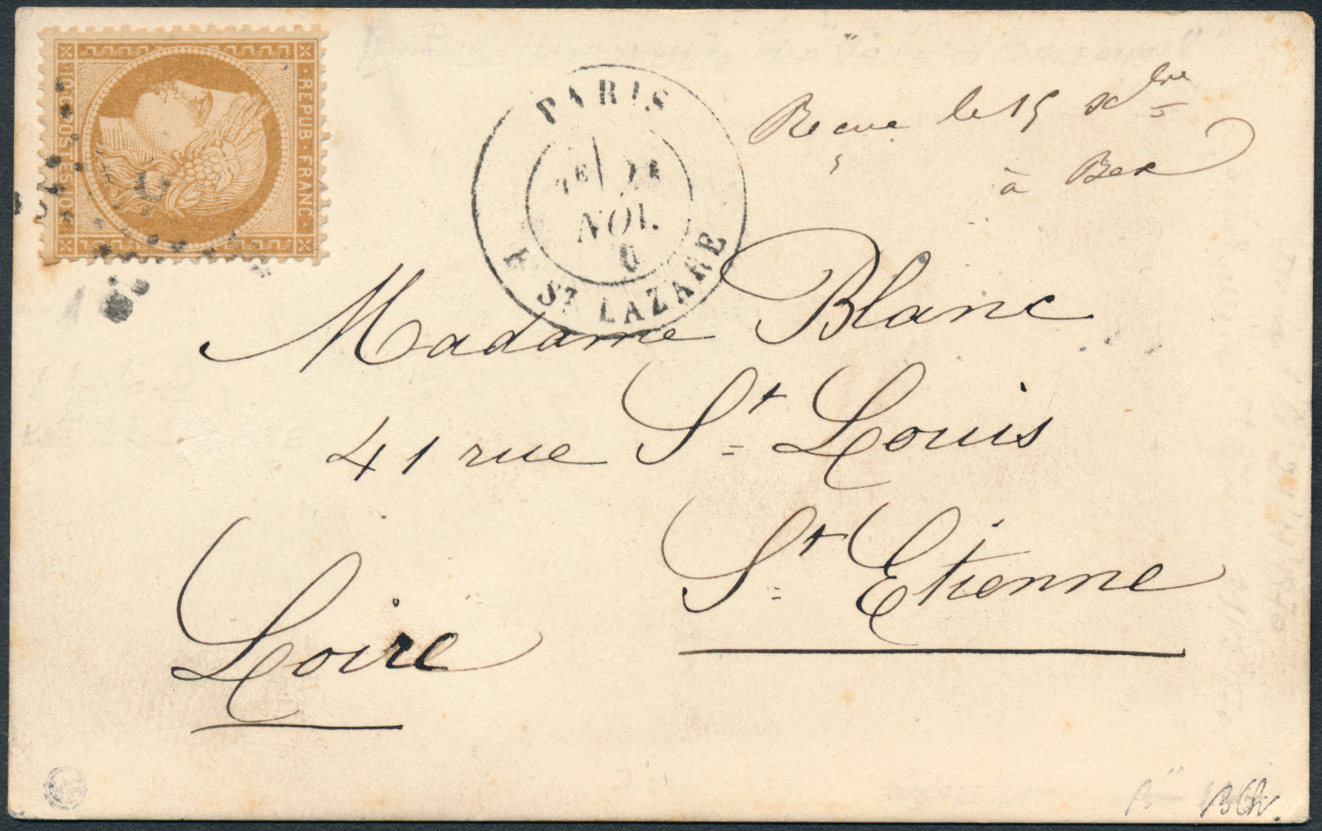 REPUB·FRANC·
10 C POSTES 10 C
PARIS
NOV.
R ST LAZARE
Reçue le 15 Xbre
à Bex
Madame Blanc
41 rue St Louis
St Etienne
Loire